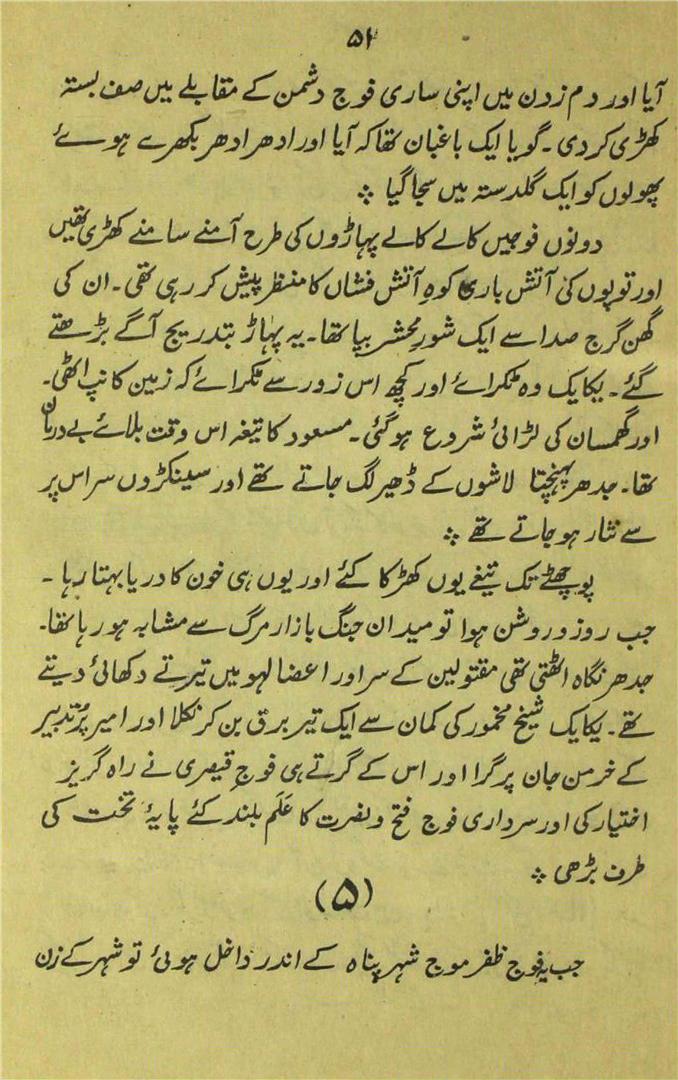 ۵۲
آیا اور دم زدن میں اپنی ساری فوج دشمن کے مقابلے میں صف بستہ
کھڑی کردی ۔ گویا ایک باغبان تھا کہ آیا اور ادھر ادھر بکھرے ہوئے
پھولوں کو ایک گلدستہ میں سجا گیا ؞
دونوں فوجیں کالے کالے پہاڑوں کی طرح آمنے سامنے کھڑی تھیں
اور توپوں کی آتش باری کوہِ آتش فشاں کا منظر پیش کر رہی تھی ۔ ان کی
گھن گرج صدا سے ایک شورِ محشر بپا تھا ۔ یہ پہاڑ بتدریج آگے بڑھتے
گئے ۔ یکایک وہ ٹکرائے اور کچھ اس زور سے ٹکرائے کہ زمین کانپ اٹھی ۔
اور گھمسان کی لڑائی شروع ہوگئی ۔ مسعود کا تیغہ اس وقت بلائے بے درمان
تھا ۔ جدھر پہنچتا لاشوں کے ڈھیر لگ جاتے تھے اور سینکڑوں سر اس پر
سے نثار ہو جاتے تھے ؞
پو پھٹے تک تیغے یوں کھڑکا کئے اور یوں ہی خون کا دریا بہتا رہا ۔
جب روز و روشن ہوا تو میدان جنگ بازار مرگ سے مشابہ ہو رہا تھا ۔
جدھر نگاہ اٹھتی تھی مقتولین کے سر اور اعضا لہو میں تیرتے دکھائی دیتے
تھے ۔ یکایک شیخ مخمور کی کمان سے ایک تیر برق بن کر نکلا اور امیر پُرتدبیر
کے خرمن جان پر گرا اور اس کے گرتے ہی فوجِ قیصری نے راہ گریز
اختیار کی اور سرداری فوج فتح و نصرت کا عَلَم بلند کئے پایۂ تخت کی
طرف بڑھی ؞
(۵)
جب یہ فوج ظفر موج شہر پناہ کے اندر داخل ہوئی تو شہر کے زن